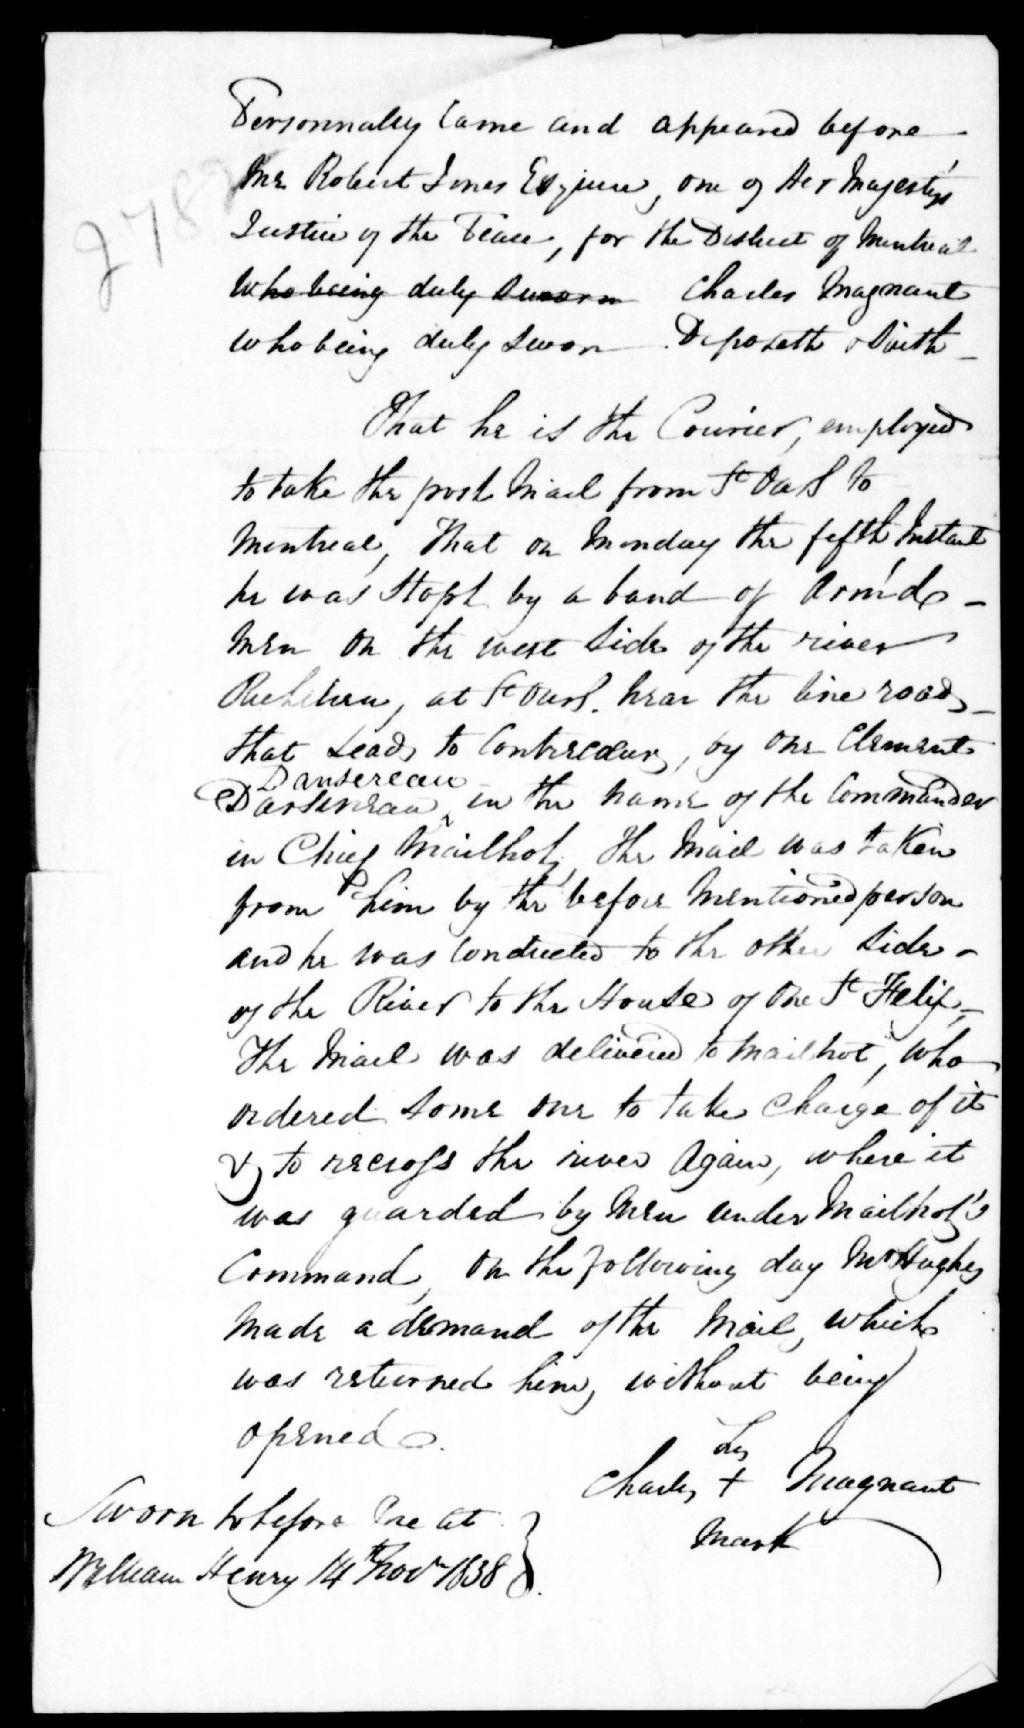 Personnaley Came and appeared before
Me Robert Jones Esquire, one of Her Majesty's
Justice of the Peace, for the District of Montreal
Who being duly Sworn Charles Magnant
who being duly Sworn Deposeth & Saith
That he is the Courier, employed
to take the post Mail from St Ours to
Montreal, That on Monday the fifth Instant
he was Stopt by a band of Arm'd
Men on the west Side of the river
Richelieu, at St Ours. near the line road
that Leads to Contrecoeur, by one Clement
Dansereau
Darsereau in the name of the Commander
in Chief Mailhot, The Mail was taken
from him by the before Mentioned person
and he was Conducted to the other Side
of the River to the House of One St Felix,
The Mail was delivered to Mailhot, who
ordered Some one to take Charge of it
& to recross the river Again, where it
was guarded by Men under Mailhot's
Command, On the following day Mr Hughes
Made a demand of the Mail, which
was returned him, without being
opened.
his
Charles + Magnant
Mark
Sworn to before Me at
William Henry 14th Novr 1838